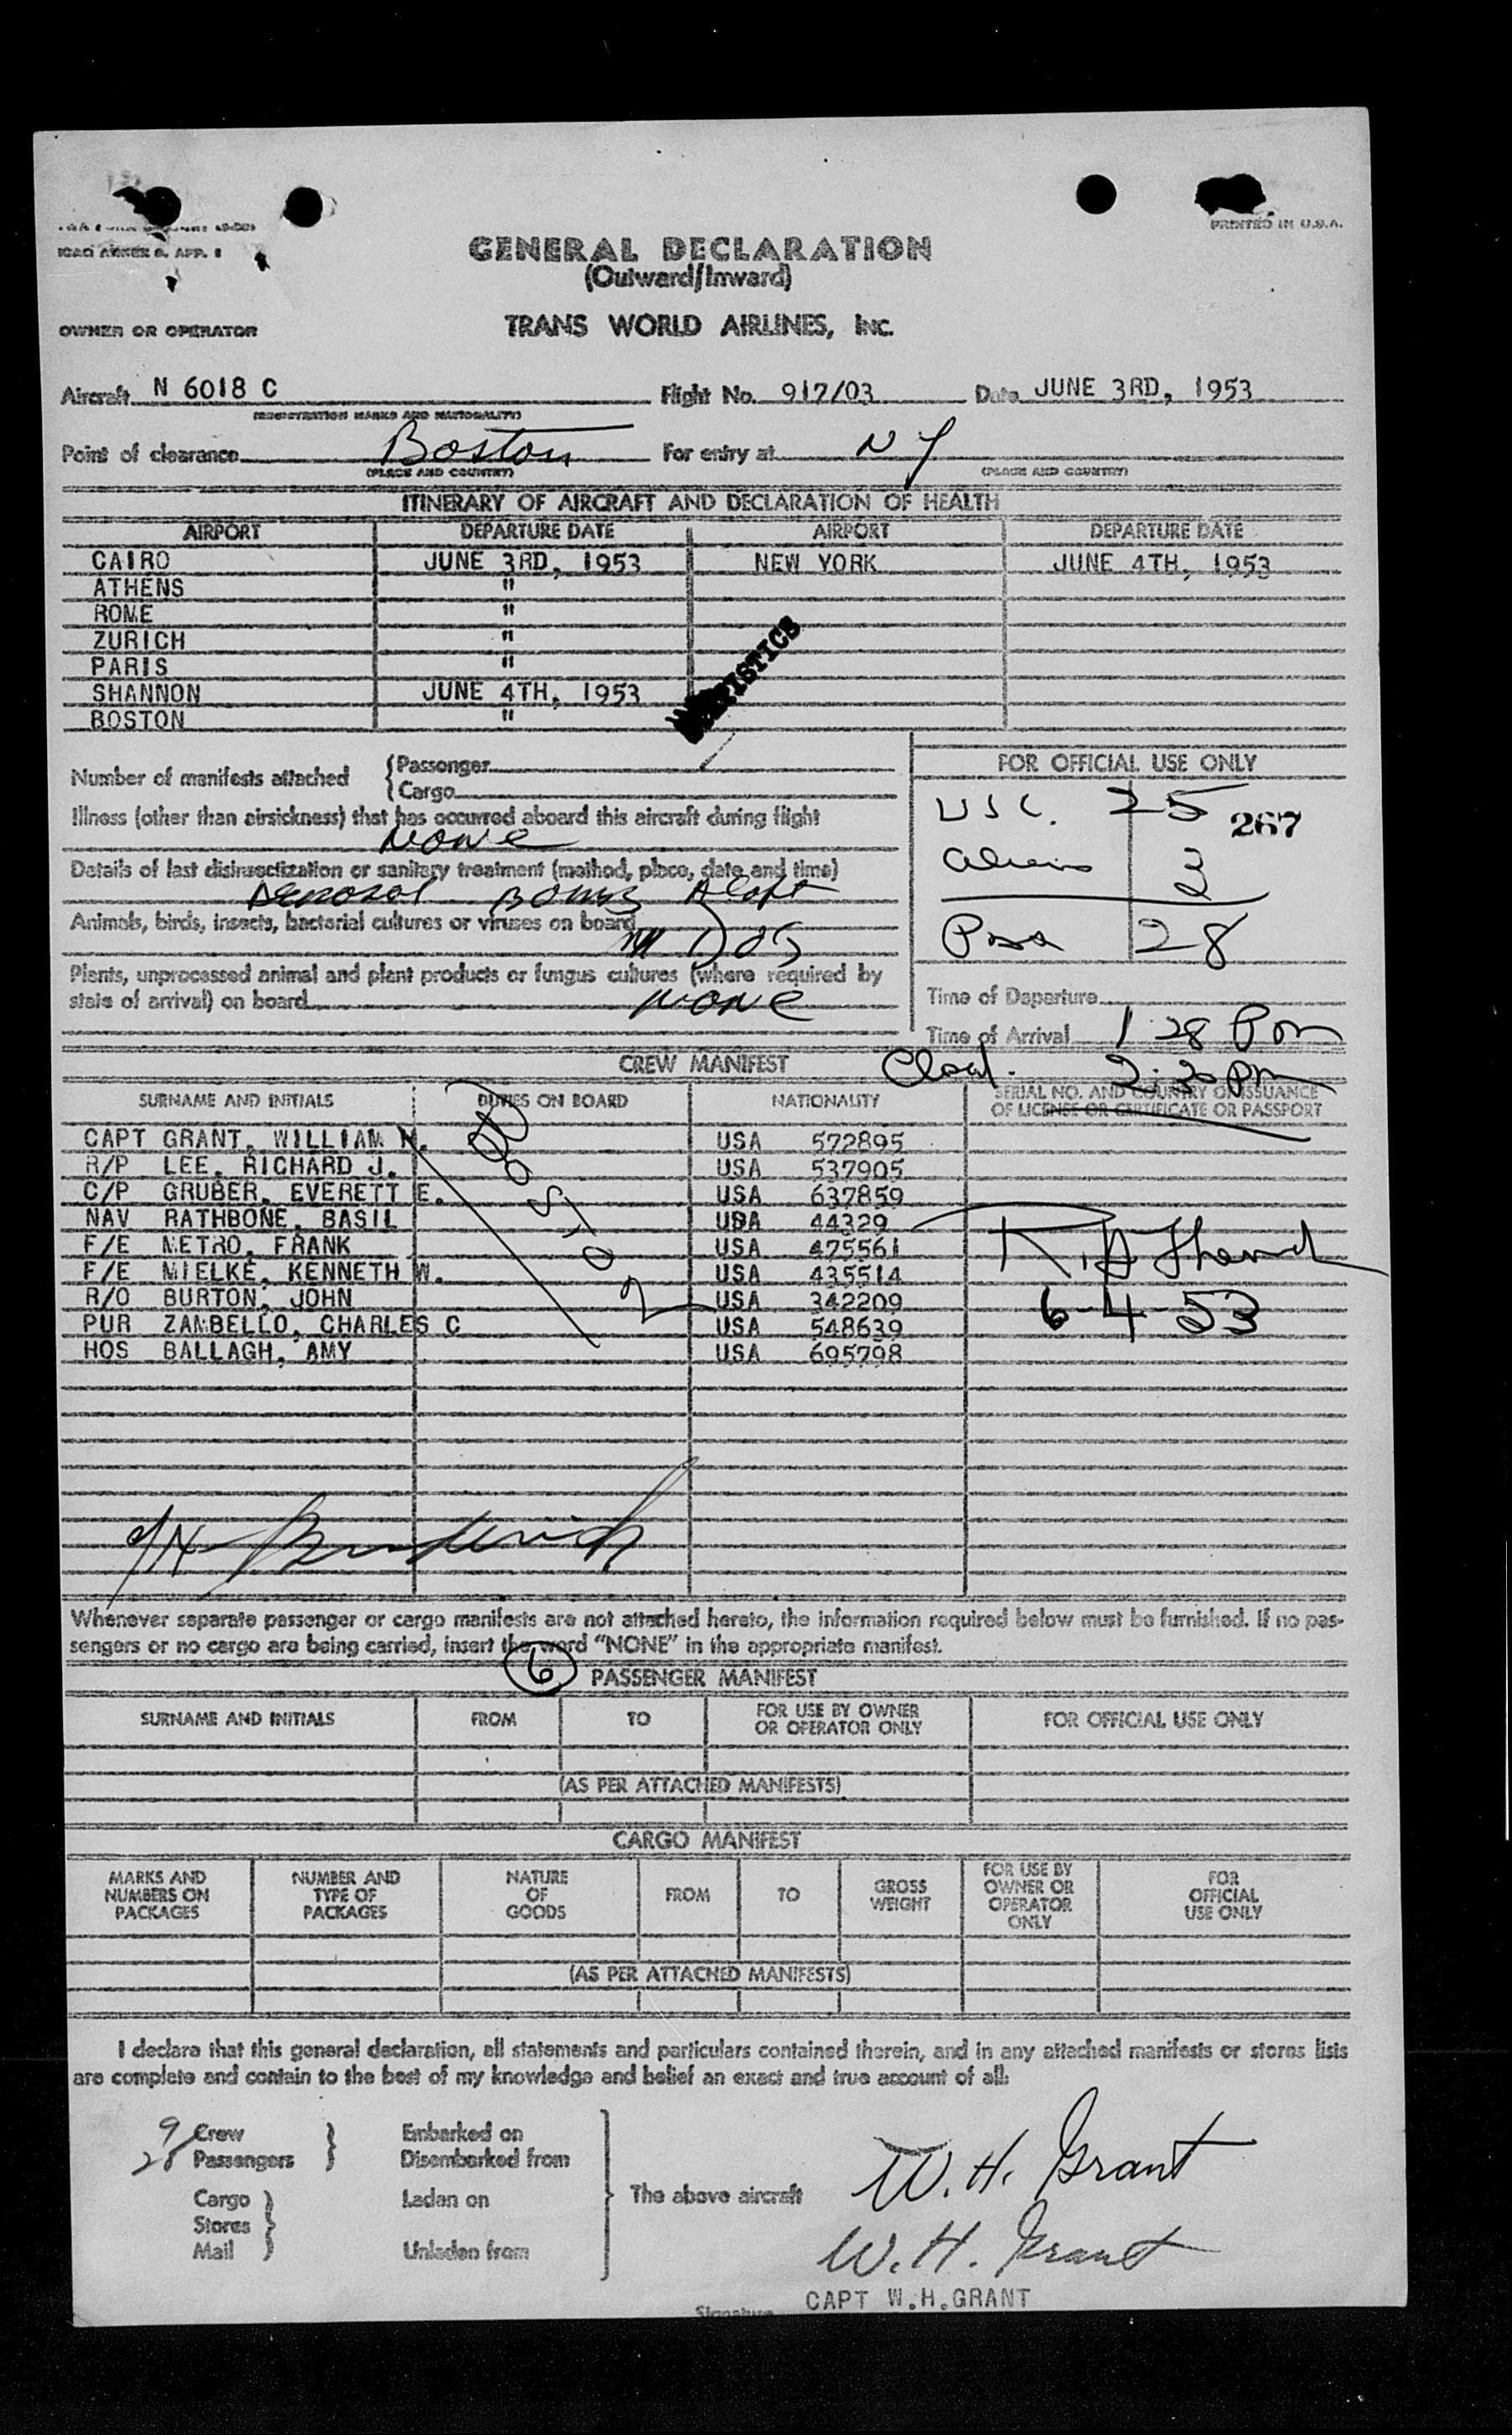 PRINTED IN U.S.A.
ICAO ANNEX 9, APP. 1
GENERAL DECLARATION
(Outward/Inward)
OWNER OR OPERATOR TRANS WORLD AIRLINES, INC.
Aircraft N 6018 C Flight No. 917/03 Date JUNE 3RD, 1953
(REGISTRATION MARKS AND NATIONALITY)
Point of clearance Boston For entry at NY
(PLACE AND COUNTRY) (PLACE AND COUNTRY)
ITINERARY OF AIRCRAFT AND DECLARATION OF HEALTH
AIRPORT DEPARTURE DATE AIRPORT DEPARTURE DATE
CAIRO JUNE 3RD, 1953 NEW YORK JUNE 4TH, 1953
ATHENS "
ROME "
ZURICH "
PARIS "
SHANNON JUNE 4TH, 1953
BOSTON "
Number of manifests attached {Passenger
{Cargo
FOR OFFICIAL USE ONLY
USC. 25
267
Aliens 3
Pass 28
Illness (other than airsickness) that has occurred aboard this aircraft during flight
None
Details of last disinsectization or sanitary treatment (method, place, date and time)
Aerosol Bomb Aloft
Animals, birds, insects, bacterial cultures or viruses on board
Dog
Plants, unprocessed animal and plant products or fungus cultures (where required by
state of arrival) on board None
Time of Departure
Time of Arrival 1 28 Pm
Clear. 2:30 pm
CREW MANIFEST
SURNAME AND INITIALS DUTIES ON BOARD NATIONALITY SERIAL NO. AND COUNTRY OF ISSUANCE
OF LICENSE OR CERTIFICATE OR PASSPORT
CAPT GRANT, WILLIAM H. USA 572895
R/P LEE, RICHARD J. USA 537905
C/P GRUBER, EVERETT E. USA 637859
NAV RATHBONE, BASIL USA 44329
F/E METRO, FRANK USA 475561
F/E MIELKE, KENNETH W. USA 435514
R/O BURTON, JOHN USA 342209
PUR ZAMBELLO, CHARLES C USA 548639
HOS BALLAGH, AMY USA 695798
Boston
6-4-53
Whenever separate passenger or cargo manifests are not attached hereto, the information required below must be furnished. If no pas-
sengers or no cargo are being carried, insert the word "NONE" in the appropriate manifest.
6 PASSENGER MANIFEST
SURNAME AND INITIALS FROM TO FOR USE BY OWNER
OR OPERATOR ONLY FOR OFFICIAL USE ONLY
(AS PER ATTACHED MANIFESTS)
CARGO MANIFEST
MARKS AND
NUMBERS ON
PACKAGES
NUMBER AND
TYPE OF
PACKAGES
NATURE
OF
GOODS
FROM
TO
GROSS
WEIGHT
FOR USE BY
OWNER OR
OPERATOR
ONLY
FOR
OFFICIAL
USE ONLY
(AS PER ATTACHED MANIFESTS)
I declare that this general declaration, all statements and particulars contained therein, and in any attached manifests or stores lists
are complete and contain to the best of my knowledge and belief an exact and true account of all:
9 Crew } Embarked on
28 Passengers } Disembarked from
Cargo } Laden on
Stores }
Mail } Unladen from
The above aircraft
W. H. Grant
W. H. Grant
CAPT W.H.GRANT
Signature